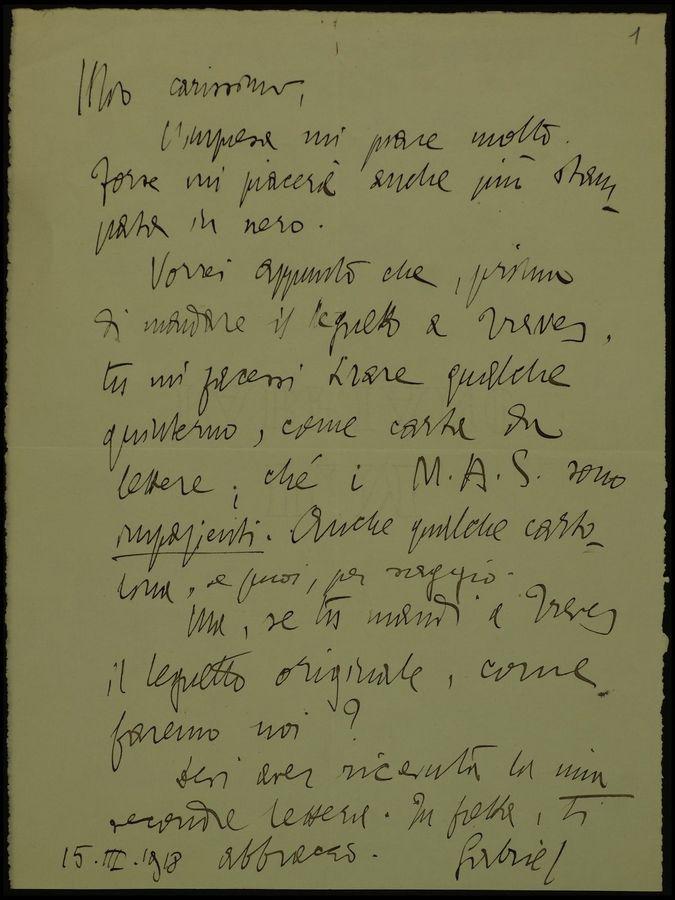 1
Mio carissimo,
L'impresa mi piace molto.
Forse mi piacerà anche più stam-
pata in nero.
Vorrei appunto che, prima
di mandare il legnetto a Treves,
tu mi facessi tirare qualche
quinterno, come carta da
lettere; ché i M.A.S. sono
impazienti. Anche qualche carto-
lina, se puoi, per saggio.
Ma, se tu mandi a Treves
il legnetto originale, come
faremo noi?
Devi aver ricevuta la mia
seconda lettera. In fretta, ti
15.III.1918 abbraccio. Gabriel